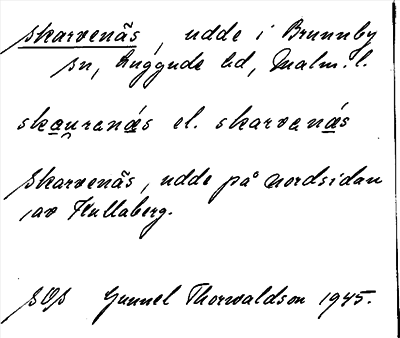 Skarvenäs, udde i Brunnby
sn, Luggude hd, Malm. l.
skauranä́s el. skarvanä́s
Skarvenäs, udde på nordsidan
av Kullaberg.
SOS Gunnel Thorvaldson 1945.